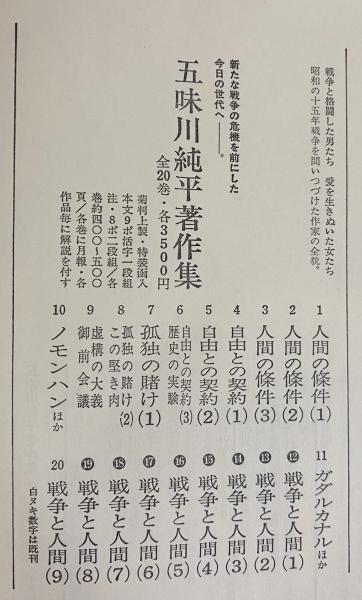 戦争と格闘した男たち 愛を生きぬいた女たち
昭和の十五年戦争を問いつづけた作家の全貌。
新たな戦争の危機を前にした
今日の世代へ――。
五味川純平著作集
全20巻・各3500円
菊判上製・特装函入
本文9ポ活字一段組
注・8ポ二段組/各
巻約四〇〇〜五〇〇
頁/各巻に月報・各
作品毎に解説を付す
1 人間の條件(1)
2 人間の條件(2)
3 人間の條件(3)
4 自由との契約(1)
5 自由との契約(2)
6 自由との契約(3)
歴史の実験
7 孤独の賭け(1)
8 孤独の賭け(2)
この堅き肉
9 虚構の大義
御前会議
10 ノモンハンほか
11 ガダルカナルほか
⓬ 戦争と人間(1)
⓭ 戦争と人間(2)
⓮ 戦争と人間(3)
⓯ 戦争と人間(4)
⓰ 戦争と人間(5)
⓱ 戦争と人間(6)
⓲ 戦争と人間(7)
⓳ 戦争と人間(8)
20 戦争と人間(9)
白ヌキ数字は既刊